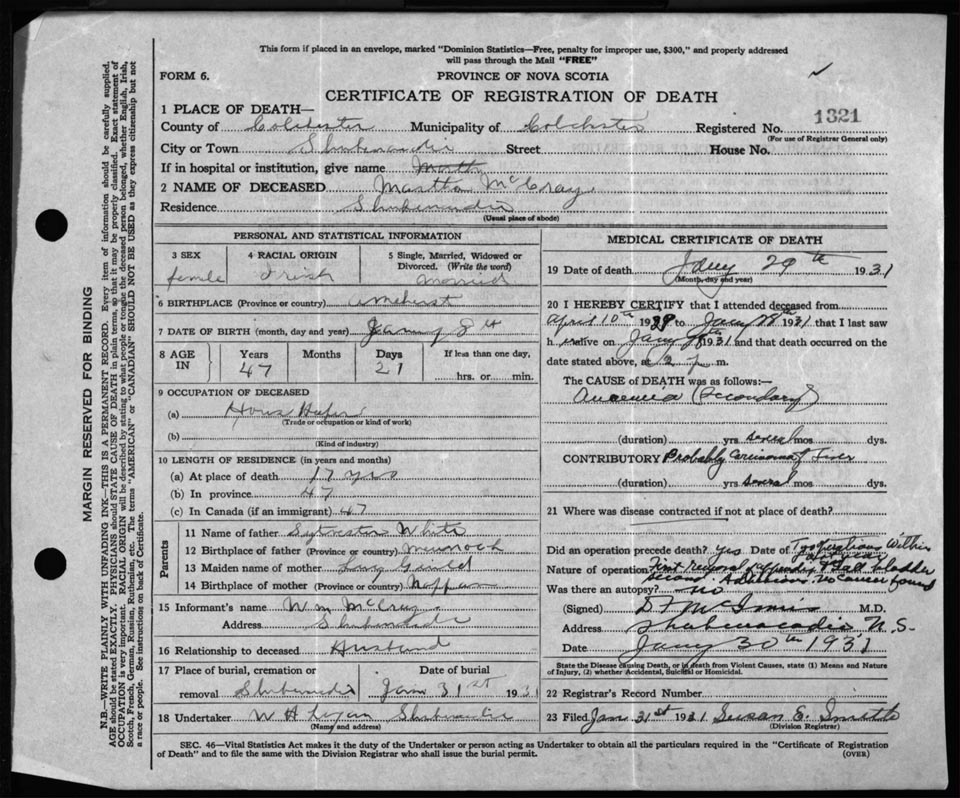 This form if placed in an envelope, marked "Dominion Statistics—Free, penalty for improper use, $300," and properly addressed
will pass through the Mail "FREE"
FORM 6.
PROVINCE OF NOVA SCOTIA
CERTIFICATE OF REGISTRATION OF DEATH
1 PLACE OF DEATH—
1321
County of Colchester Municipality of Colchester Registered No.
(For use of Registrar General only)
City or Town Shubenacadie Street House No.
If in hospital or institution, give name
2 NAME OF DECEASED Martha McCray
Residence Shubenacadie
(Usual place of abode)
PERSONAL AND STATISTICAL INFORMATION
3 SEX
femle
4 RACIAL ORIGIN
Irish
5 Single, Married, Widowed or
Divorced. (Write the word)
Married
6 BIRTHPLACE (Province or country) Amherst
7 DATE OF BIRTH (month, day and year) Jany 8th
8 AGE IN
Years
47
Months
Days
21
If less than one day,
hrs. or min.
9 OCCUPATION OF DECEASED
(a)
(Trade or occupation or kind of work)
(b)
(Kind of industry)
10 LENGTH OF RESIDENCE (in years and months)
(a) At place of death 17 yrs
(b) In province 47
(c) In Canada (if an immigrant) 47
Parents
11 Name of father Sylvester White
12 Birthplace of father (Province or country)
13 Maiden name of mother
14 Birthplace of mother (Province or country) Nappan
15 Informant's name Wm McCray
Address Shubenacadie
16 Relationship to deceased Husband
17 Place of burial, cremation or Date of burial
removal Shubenacadie Jan 31st 1931
18 Undertaker W H Logan Shubenacadie
(Name and address)
MEDICAL CERTIFICATE OF DEATH
19 Date of death Jany 29th 1931
(Month, day and year)
20 I HEREBY CERTIFY that I attended deceased from
April 10th 1929 to Jany 28th 1931 that I last saw
h er alive on Jany 1931 and that death occurred on the
date stated above, at 2 m.
The CAUSE of DEATH was as follows:—
Anaemia (Secondary)
(duration) yrs several mos dys.
CONTRIBUTORY Probably Carcinoma of Liver
(duration) yrs several mos dys.
21 Where was disease contracted if not at place of death?
Did an operation precede death? yes Date of Two operations within
Nature of operation First removal of appendix & Gall bladder
second. Adhesions. No cancer found
Was there an autopsy? no
(Signed) D F McInnis M.D.
Address Shubenacadie N.S.
Date Jany 30th 1931
State the Disease causing Death, or in death from Violent Causes, state (1) Means and Nature
of Injury, (2) whether Accidental, Suicidal or Homicidal.
22 Registrar's Record Number
23 Filed Jan 31st 1931 Susan E. Smith
(Division Registrar)
SEC. 46—Vital Statistics Act makes it the duty of the Undertaker or person acting as Undertaker to obtain all the particulars required in the "Certificate of Registration
of Death" and to file the same with the Division Registrar who shall issue the burial permit.
(OVER)
MARGIN RESERVED FOR BINDING
N.B.—WRITE PLAINLY WITH UNFADING INK—THIS IS A PERMANENT RECORD. Every item of information should be carefully supplied.
AGE should be stated EXACTLY. PHYSICIANS should STATE CAUSE OF DEATH in plain terms, so that it may be properly classified. Exact statement of
OCCUPATION is very important. RACIAL ORIGIN will be described by stating to what people or tongue the deceased person belonged, whether English, Irish,
Scotch, French, German, Russian, Ruthenian, etc. The terms "AMERICAN" or "CANADIAN" SHOULD NOT BE USED as they express citizenship but not
a race or people. See instructions on back of Certificate.